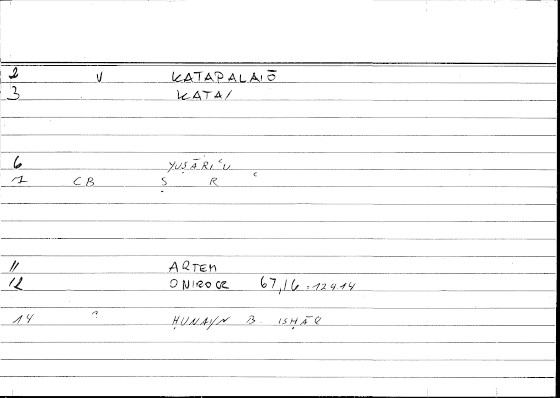 2 V KATAPALAIŌ
3 KATA/
6 YUṢĀRIʿU
7 CB Ṣ R ʿ
11 ARTEM
12 ONIROCR 67,16 = 124 14
14 ḤUNAYN B. ISḤĀQ